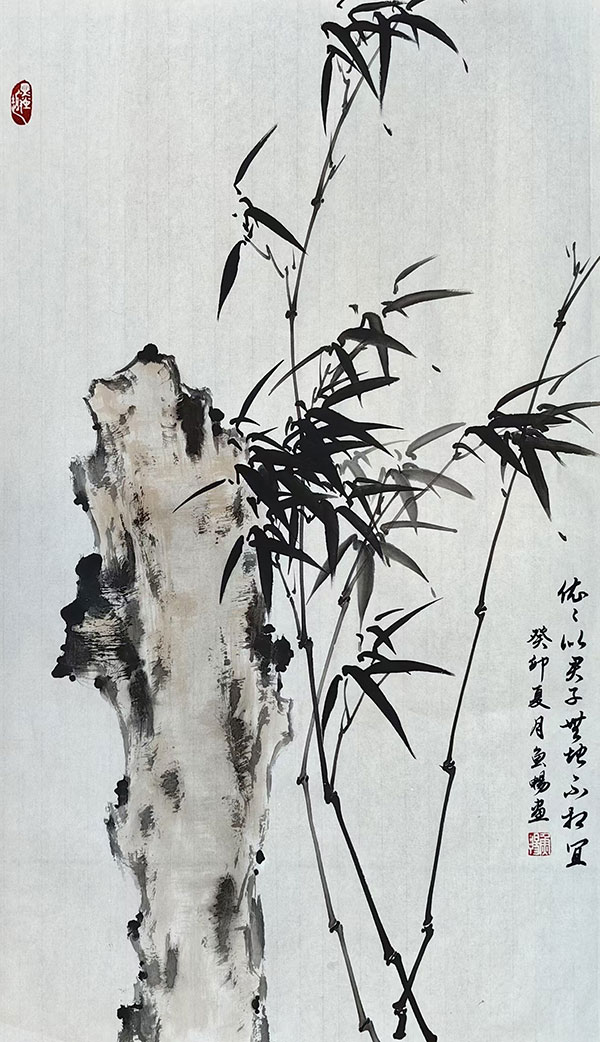 依〻似君子無地不相宜
癸卯夏月畫